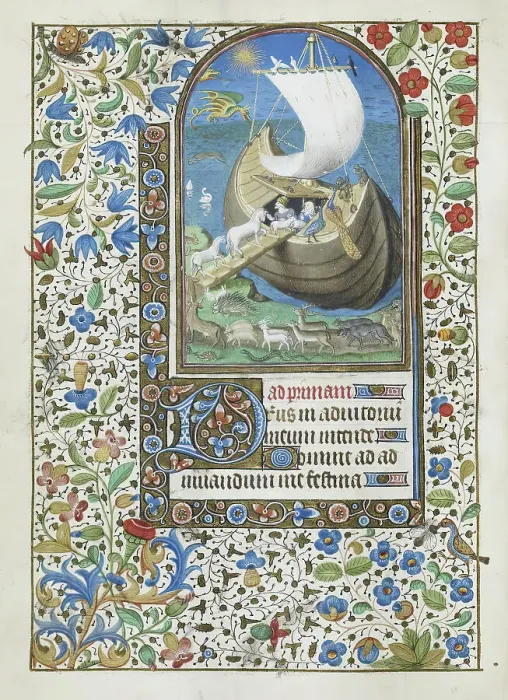 ad primam
Deus in adiutoriu
meum intende
Domine ad ad
iuuandum me festina